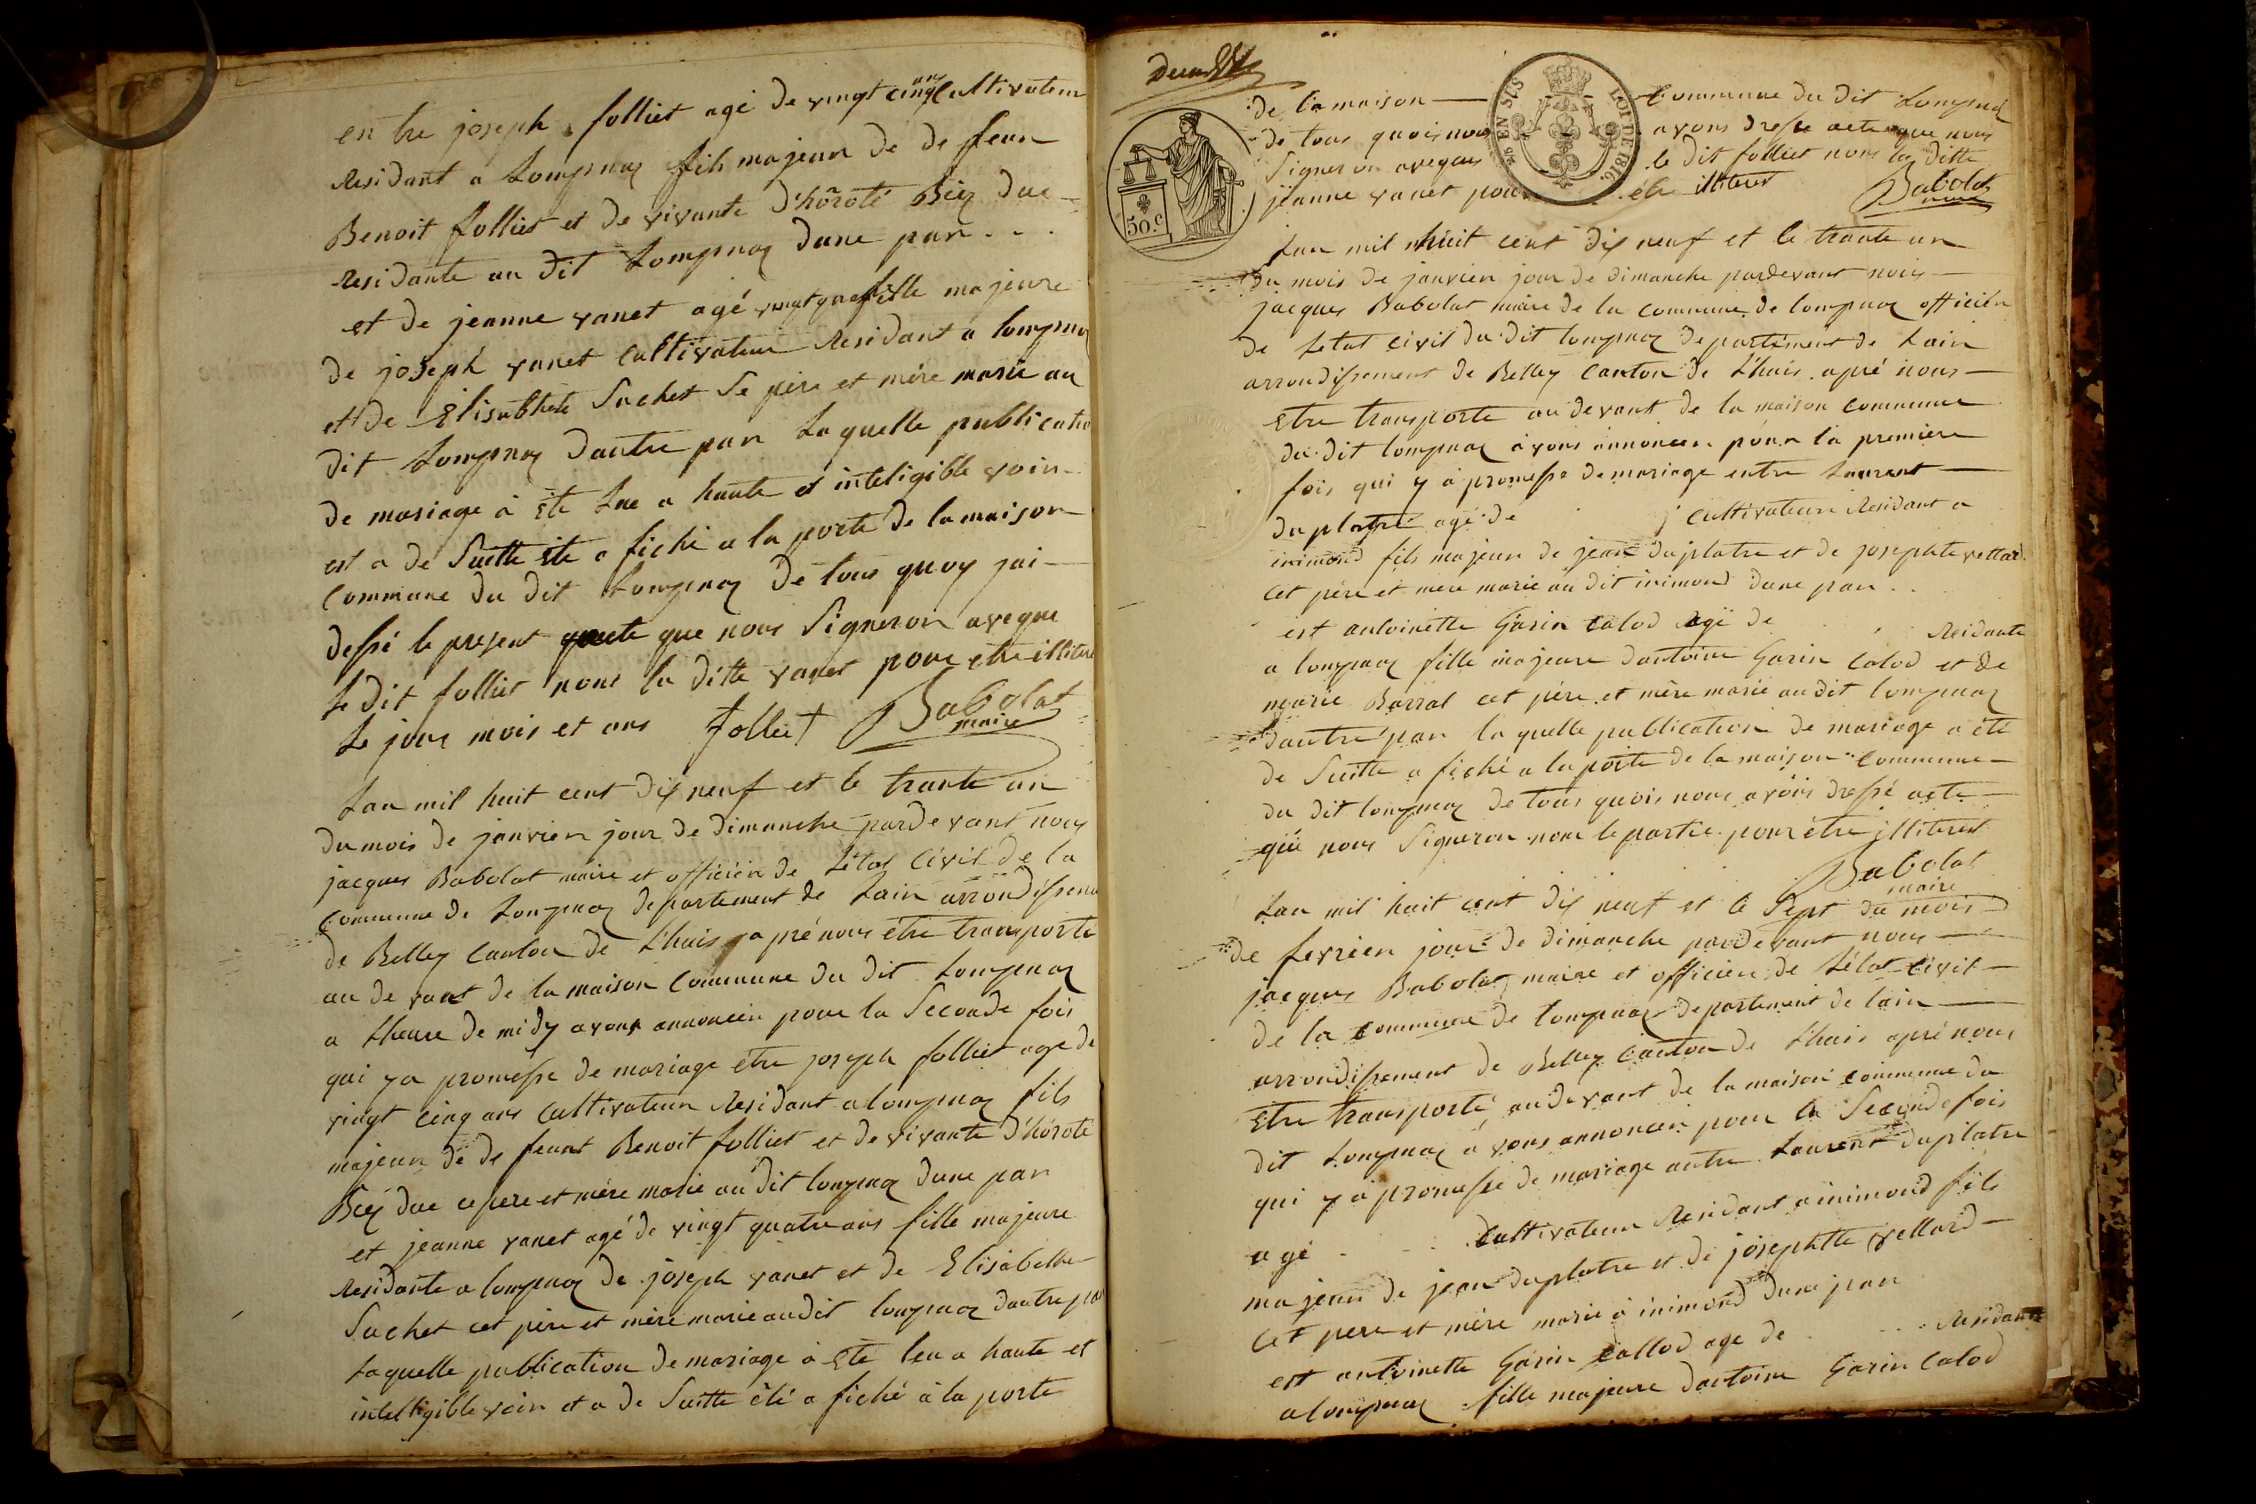 en tre joseph folliet agé de vingt cinq ans Cultivateur
Residant a Lompnaz fils majeur de de feun
Benoit folliet et de vivante d'hôroté Bié duc
residante au dit Lompnaz dune par . . .
et de jeanne vanet agé vingt quatre fille majeure
de joseph vanet Cultivateur Residant a lompnaz
et de Elisabhete Suchet Se père et mére marié au
dit Lompnaz dautre par Laquelle publicatio
de mariage à été Lue a haute et inteligible voin
est a de Suitte été a fiché a la porte de la maison
Commune du dit Lompnaz De tous quoy jai
dessé le present acte que nous Signeron aveque
Le dit folliet nons la ditte vanet pour etre illitere
Le jour mois et ans folliet Babolat
maire
Lan mil huit cent dix neuf et le trante un
du mois de janvien jour de dimanche parde vant nous
jacques Babolat maire et officiér de L'état Civil de la
Commune de Lompnaz departement de Lain arrondissem
de Belley Canton de L'huis apré nous être transporté
au de vant de la maison Commune du dit Lompnaz
a Lheure de midy avons annoncén pour la Seconde fois
qui ya promesse de mariage etre joseph folliet age de
vingt cinq ans Cultivateur Residant a lompnaz fils
majeur de de feunt Benoit folliet et de vivante d'hôroté
Bié duc ce pere et mére marie au dit lompnaz dune par
et jeanne vanet agé de vingt quatre ans fille majeure
Residante a lompnaz de joseph vanet et de Elisabethe
Suchet cet père et mére marie audit lompnaz dautre par
Laquelle publication de mariage à été leu a haute et
intelligible voin et a de Suitte été a fiché à la porte
50.c
25 EN SUS
LOI DE 1816.
de la maison Commune du dit Lompnaz
de tous quois nous avons dresse acte que nous
Signeron aveques le dit folliet nons la ditte
jeanne vanet pour etre illiteret Babolat
maire
Lan mil huit cent dix neuf et le trante un
du mois de janvien jour de dimanche pardevant nous
jacques Babolat maire de la commune de lompnaz officiér
de Letat Civil du dit lompnaz departement de Lain
arrondissement de Belley Canton de L'huis apré nous
Etre transporte au devant de la maison commune
du dit lompnaz avons annoncen pour la premiere
fois qui y à promesse de mariage entre Laurent
duplatre agé de Cultivateur Residant a
inimond fils majeur de jean duplatre et de josephte vettard
Cet père et mere marie au dit inimond dune par . .
est antoinette Garin Calod agé de Residante
a lompnaz fille majeure dantoine Garin Calod et de
marie Barral cet père et mère marie au dit lompnaz
dautre par la quelle publication de mariage a été
de Suitte a fiché a la porte de la maison Commune
du dit lompnaz de tous quois nous avons dressé acte
que nous Signeron nons le partie pour être illiteret
Babolat
maire
Lan mil huit cent dix neuf et le Sept du mois
de fevrien jour de dimanche pardevant nous
jacques Babolat maire et officier de Létat Civil
de la commune de lompnaz departement de lain
arrondissement de Belley Canton de L'huis apré nous
Etre transporté au devant de la maison commune du
dit Lompnaz avons annoncen pour la Seconde fois
qui y à promesse de mariage antre Laurent duplatre
agé Cultivateur Residant a inimond fils
majeur de jean duplatre et de josephtte vettard
Cet pere et mére marie à inimond dune par
est antoinette Garin Callod age de Residante
a lompnaz fille majeure dantoine Garin Calod